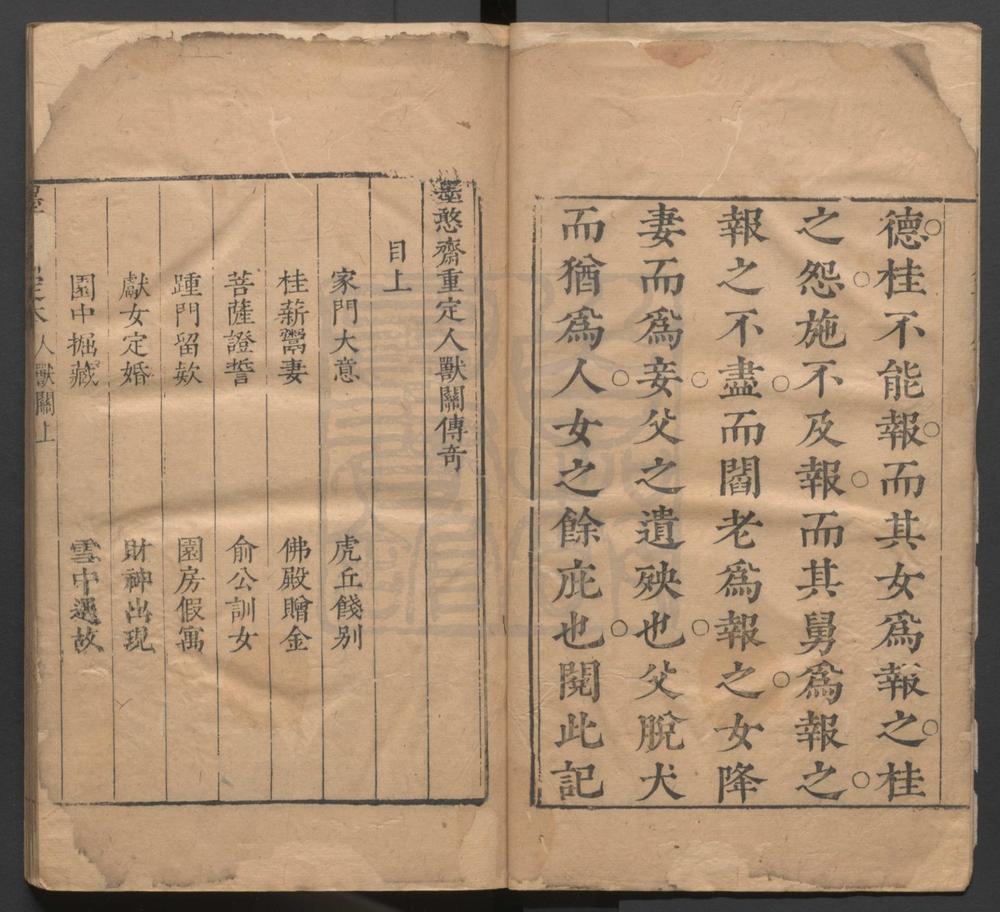 德桂不能報而其女爲報之桂
之怨施不及報而其舅爲報之
報之不盡而閻老爲報之女降
妻而爲妾父之遺殃也父脫犬
而猶爲人女之餘庇也閱此記
墨憨齋重定人獸關傳奇
目上
家門大意 虎丘餞别
桂薪鬻妻 佛殿贈金
菩薩證誓 俞公訓女
踵門留欵 園房假寓
獻女定婚 財神出現
園中掘藏 雲中遇故
人獸關上